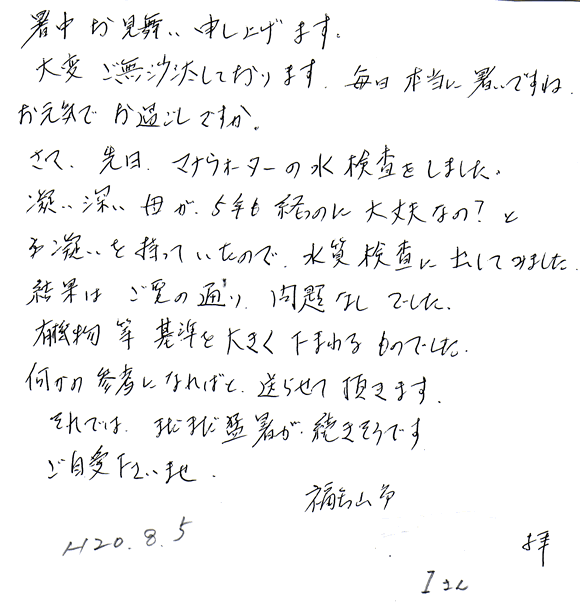 暑中お見舞い申し上げます。
大変ご無沙汰しております。毎日本当に暑いですね。
お元気でお過ごしですか。
さて、先日、マナウォーターの水検査をしました。
凝い深い母が、5年も経つのに大丈夫なの？と
不凝いを持っていたので、水質検査に出してみました。
結果はご覧の通り、問題なしでした。
有機物等基準を大きく下まわるものでした。
何かの参考になればと、送らせて頂きます。
それでは、まだまだ猛暑が続きそうです
ご自愛下さいませ。
福知山市
H20.8.5
拝
Iさん